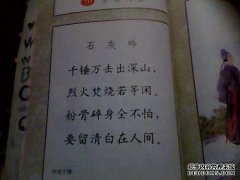 石灰吟
千锤万击出深山，
烈火焚烧若等闲。
粉骨碎身全不怕，
要留清白在人间。